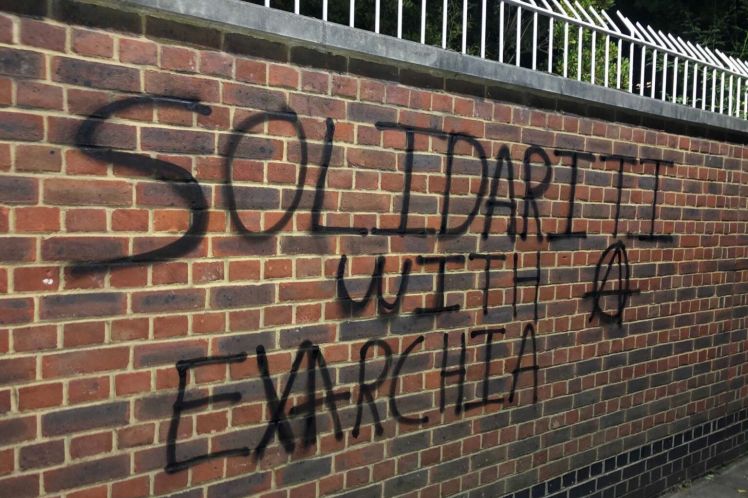 SOLIDARITI
WITH Ⓐ
EXARCHIA